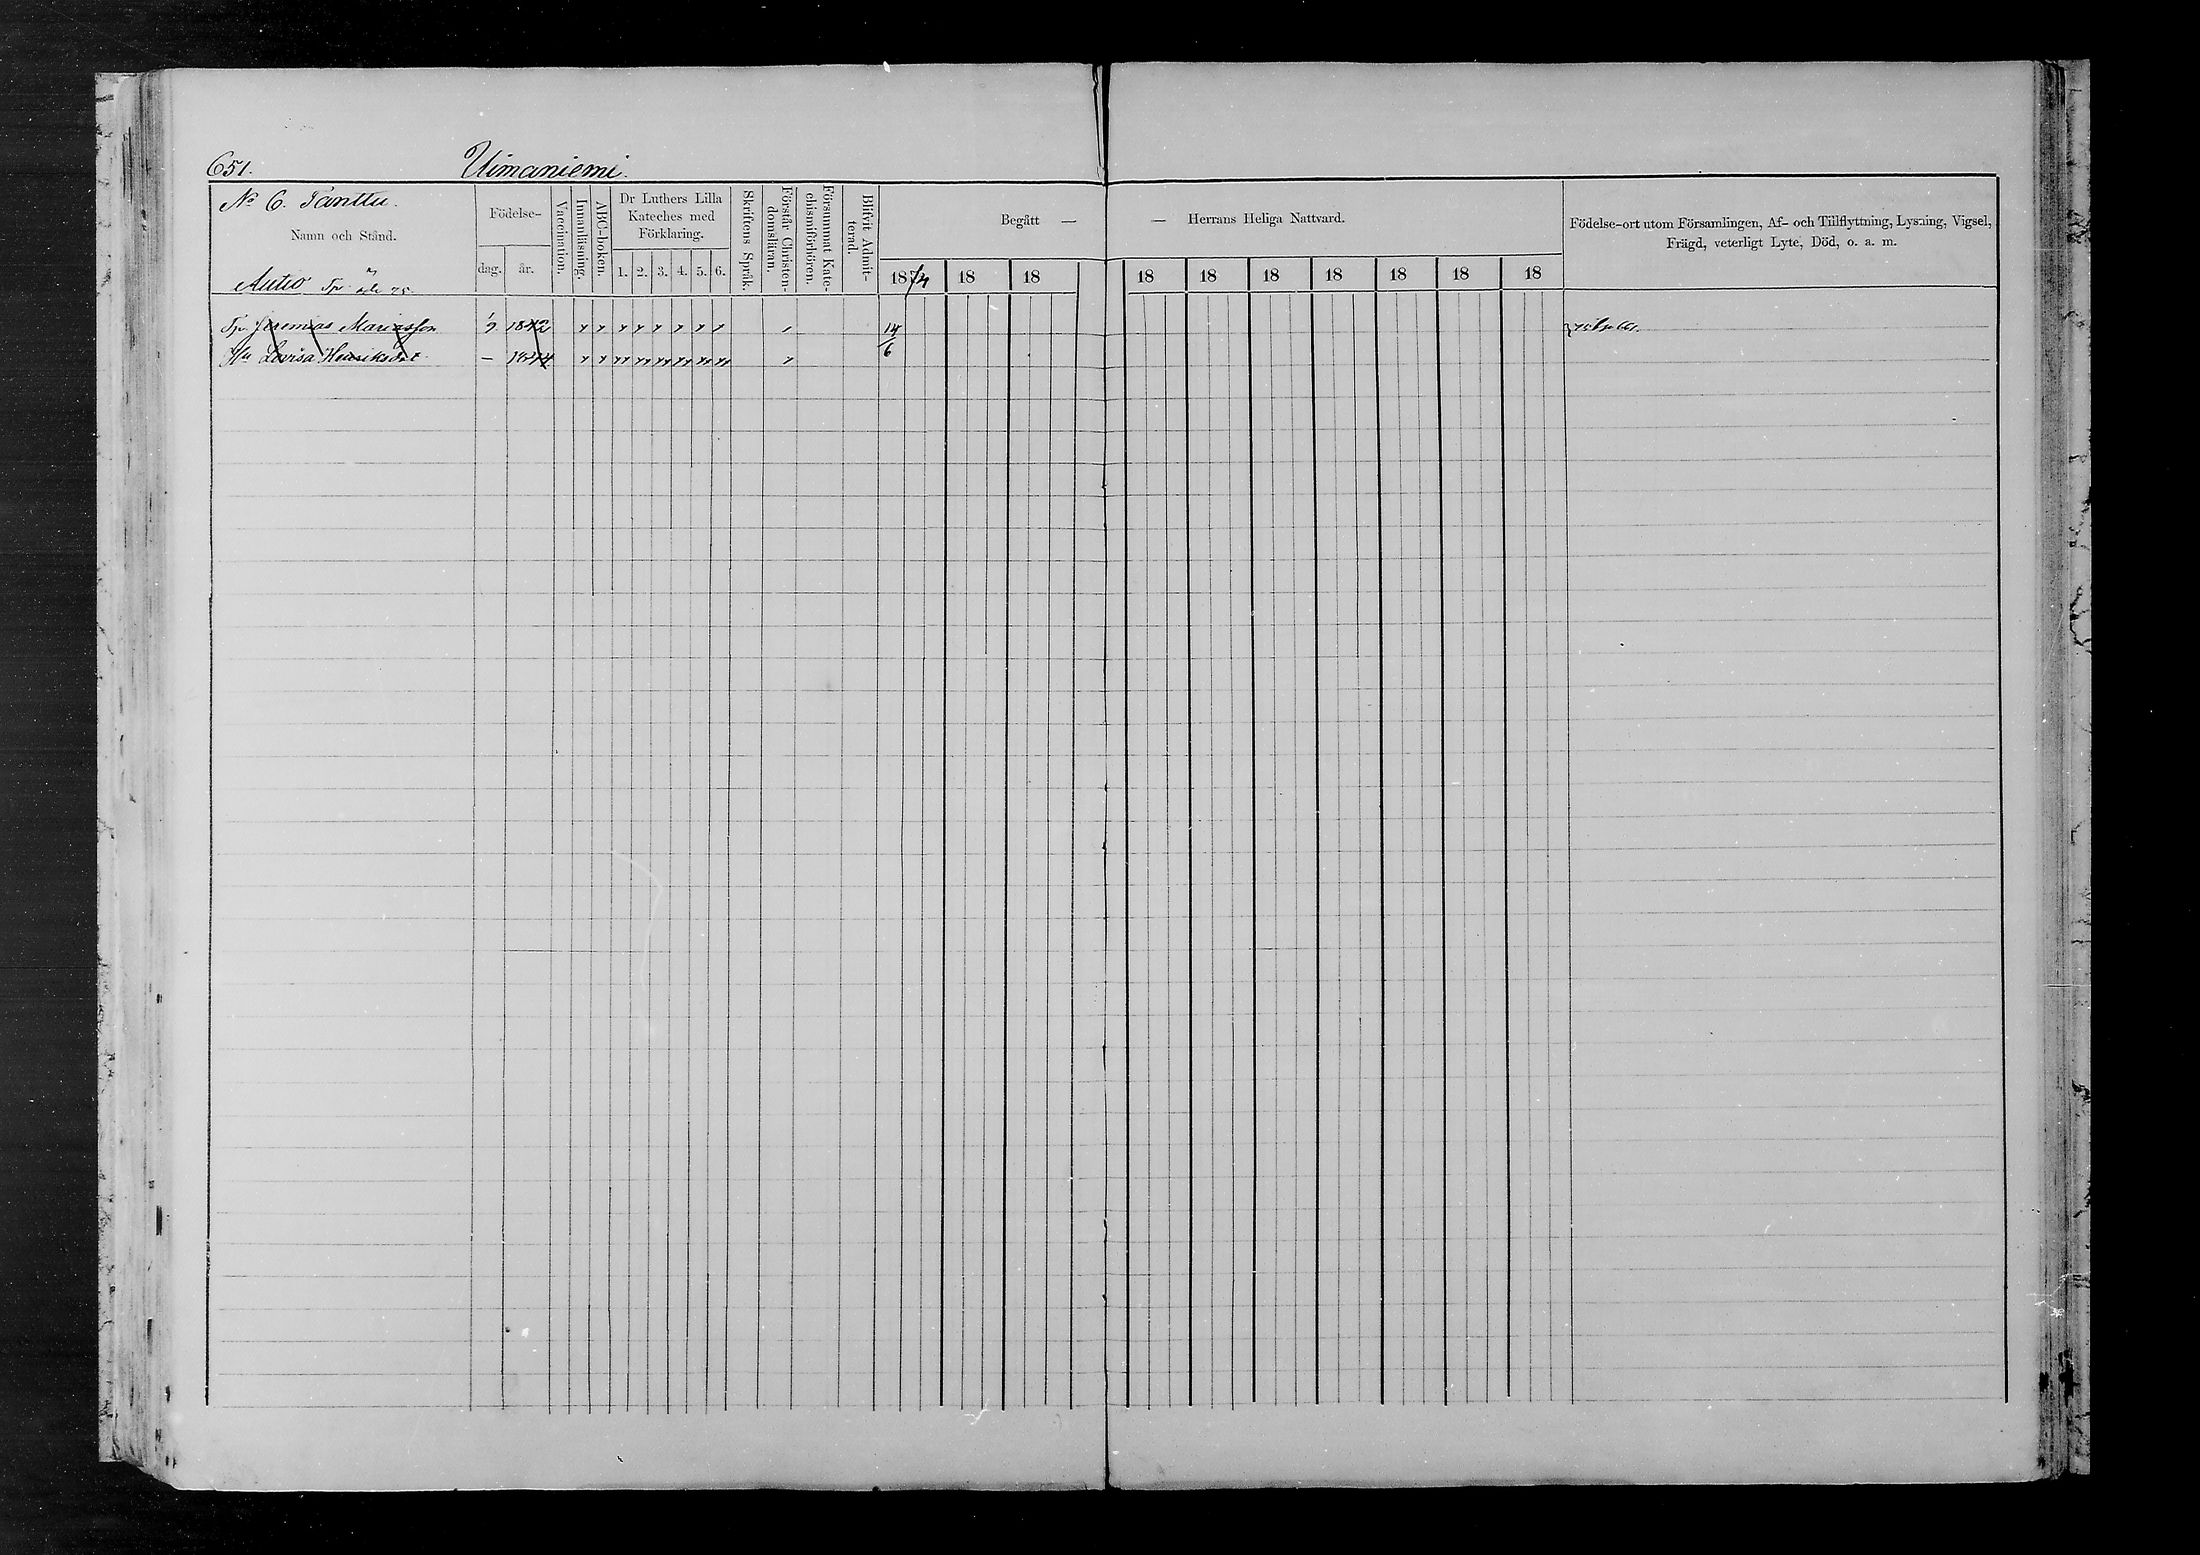 651. Uimaniemi.
No 6. Tanttu.
Namn och Stånd.
Födelse-
dag. år.
Vaccination.
Innanläsning.
ABC-boken.
Dr Luthers Lilla
Kateches med
Förklaring.
1. 2. 3. 4. 5. 6.
Skriftens Språk.
Förstår Christen-
domsläran.
Försummat Kate-
chismiförhören.
Blifvit Admit-
terad.
Begått — — Herrans Heliga Nattvard.
1874 18 18 18 18 18 18 18 18 18
Födelse-ort utom Församlingen, Af- och Tillflyttning, Lysning, Vigsel,
Frägd, veterligt Lyte, Död, o. a. m.
Autio Tp öde 75.
Tp Jeremias Mariasson 1/7 1842 14/6
Hu Lovisa Henriksdot — 1844